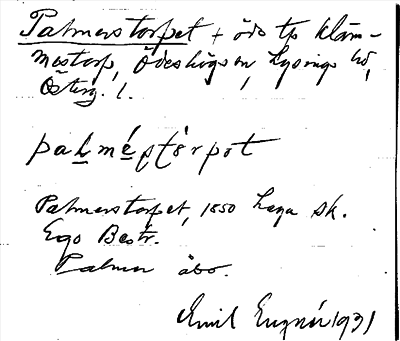 Palmerstorpet + öde tp Kläm-
mestorp, Ödeshögs sn, Lysings hd,
Österg. l.
palméstơrpot
Palmerstorpet, 1850 Laga sk.
Ego Beskr.
Palmer åbo.
Emil 1931